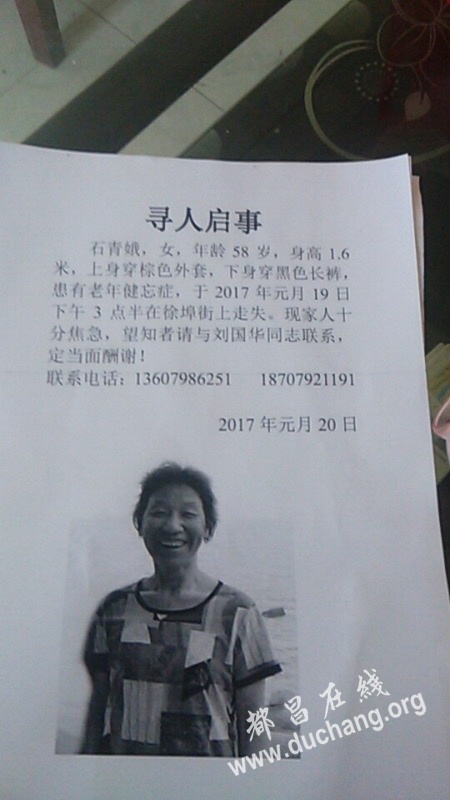 寻人启事
石青娥，女，年龄 58 岁，身高 1.6
米，上身穿棕色外套，下身穿黑色长裤，
患有老年健忘症，于 2017 年元月 19 日
下午 3 点半在徐埠街上走失。现家人十
分焦急，望知者请与刘国华同志联系，
定当面酬谢！
联系电话：13607986251 18707921191
2017 年元月 20 日
都昌在线
www.duchang.org